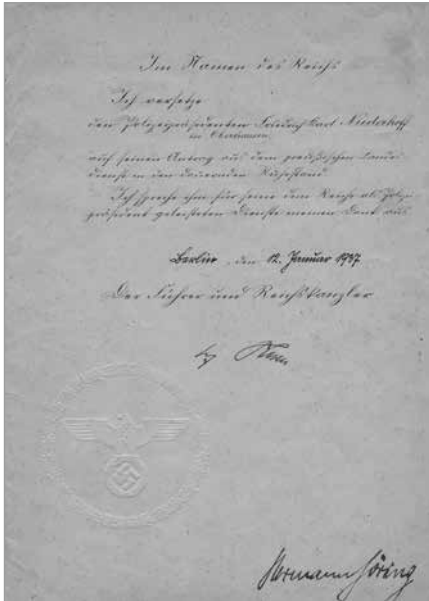 Im Namen des Reichs
Ich versetze
den Polizeipräsidenten Friedrich Karl Niederhoff
in Oberhausen
auf seinen Antrag aus dem preußischen Landes-
dienst in den dauernden Ruhestand.
Ich spreche ihm für seine dem Reiche als Polizei-
präsident geleisteten Dienste meinen Dank aus.
Berlin, den 12. Januar 1937
Der Führer und Reichskanzler
Hermann Göring